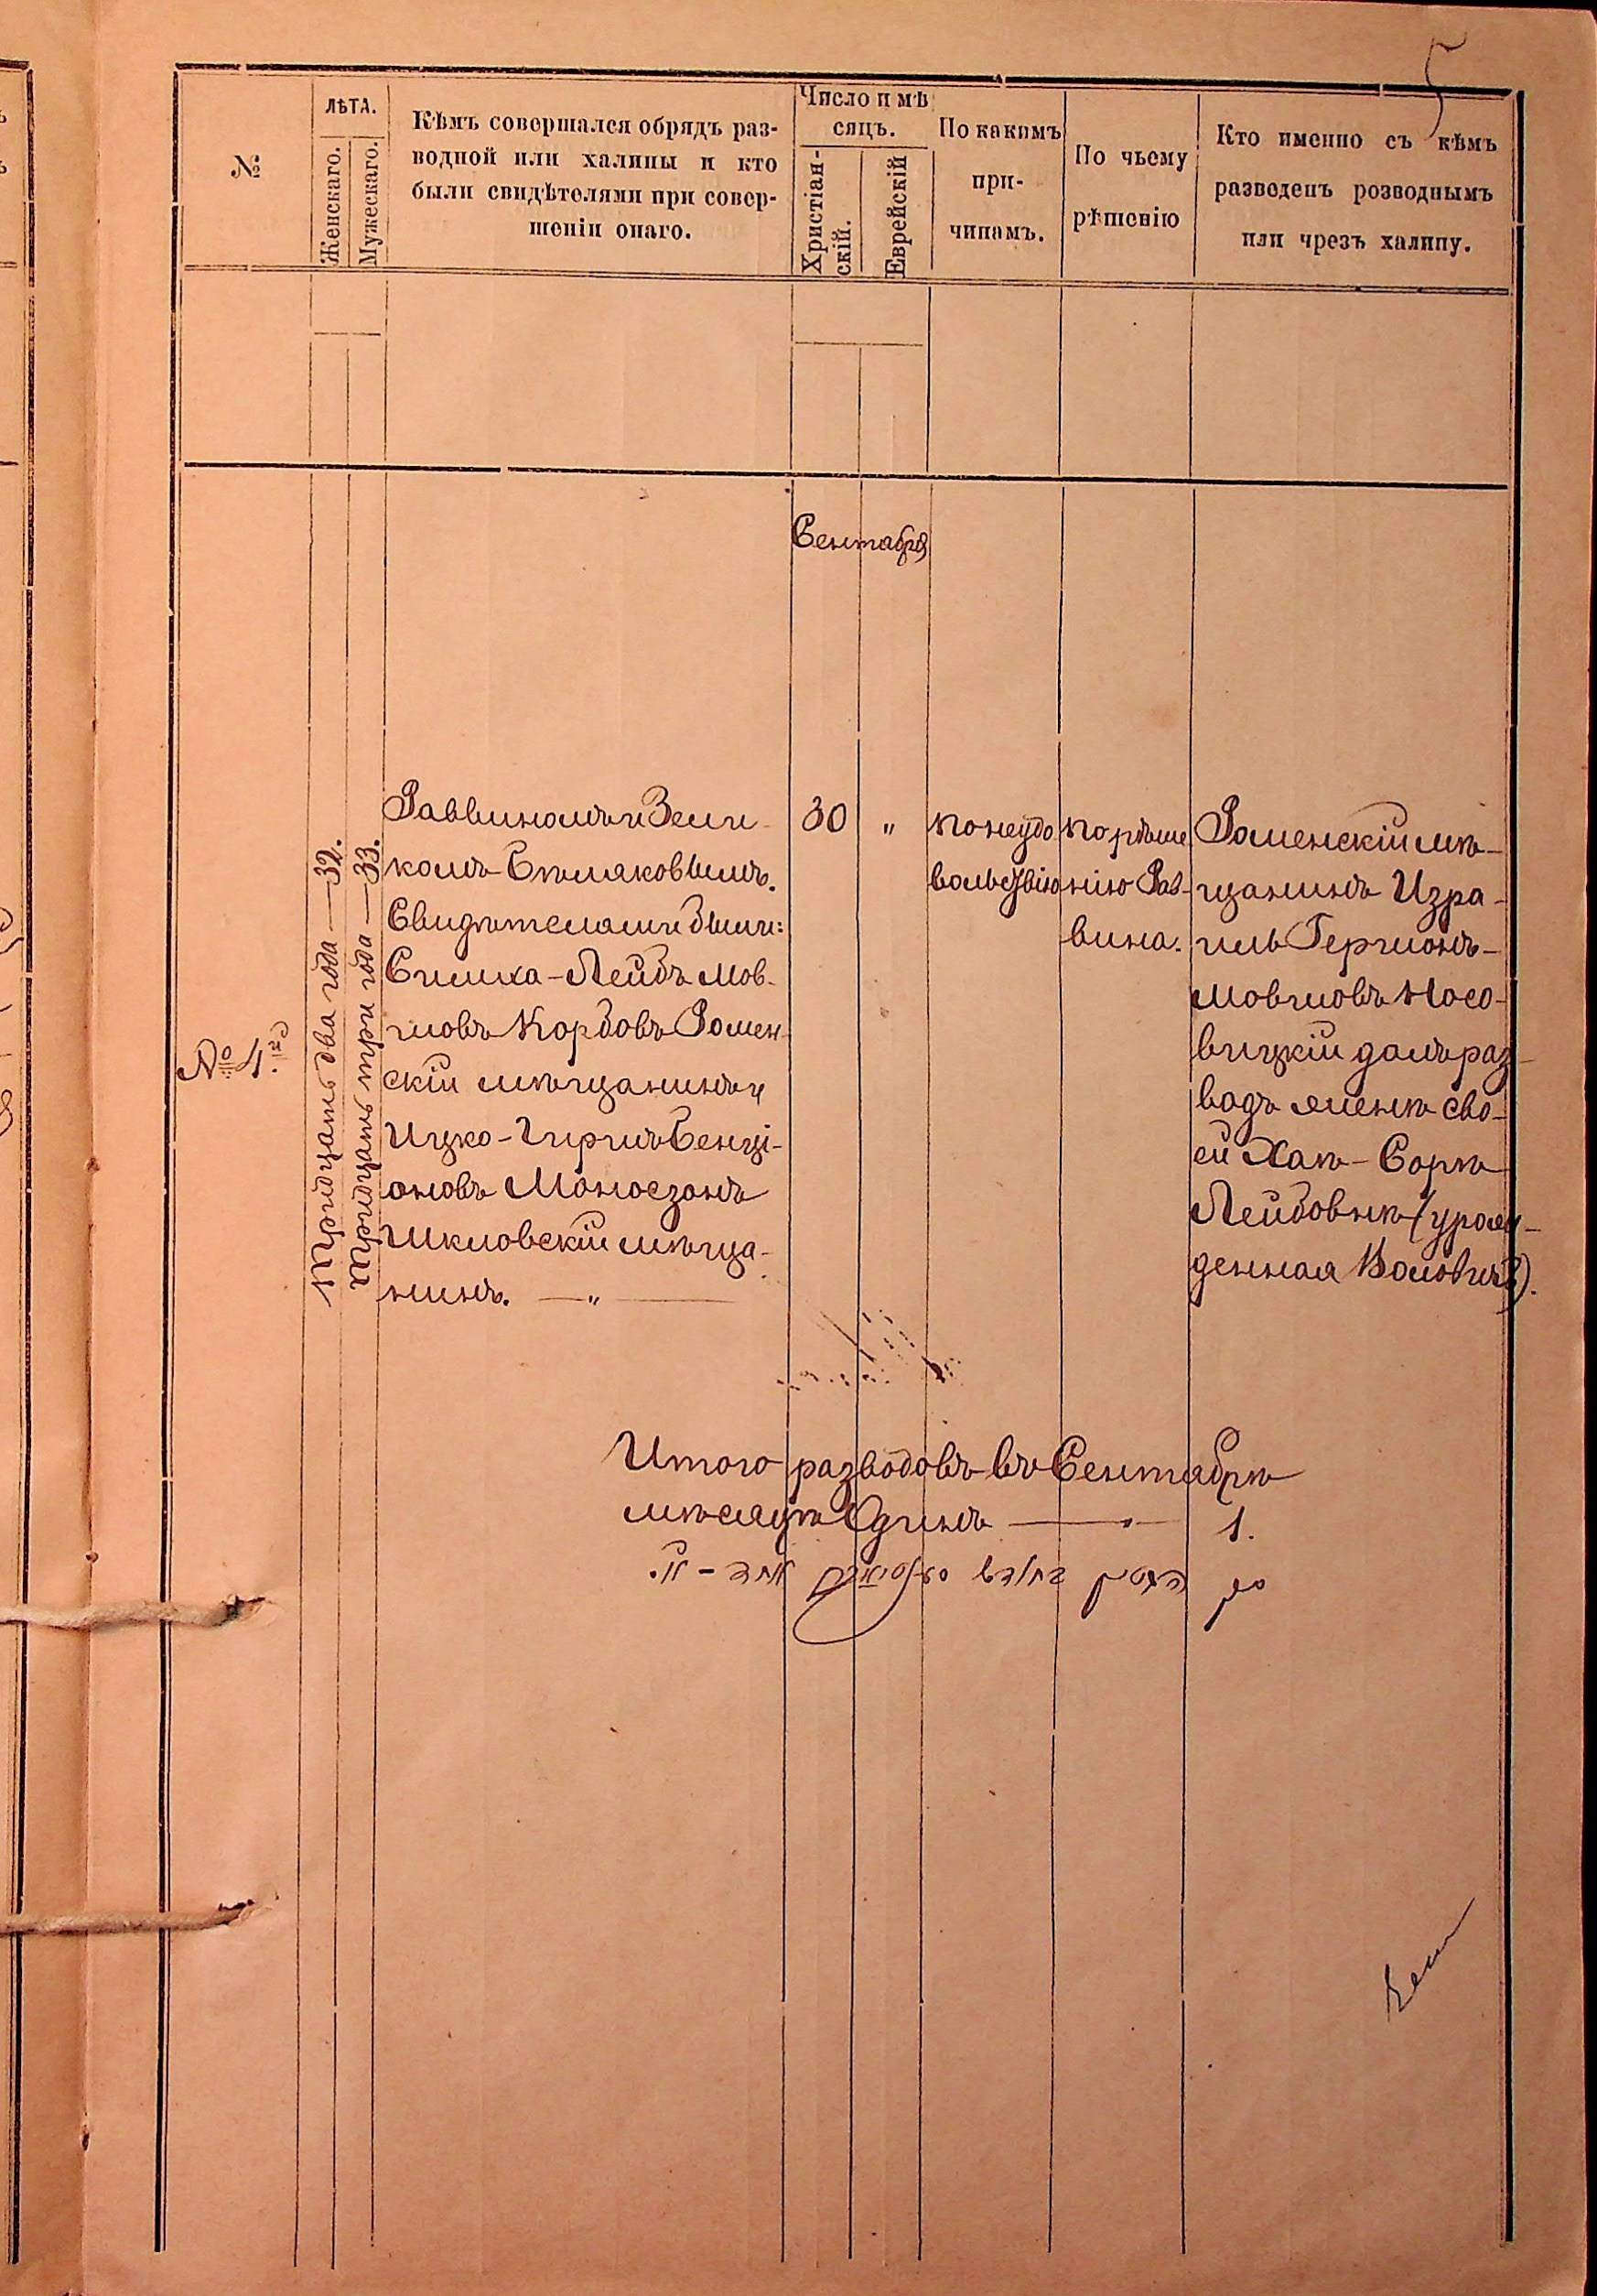 5
№
ЛѢТА.
Женскаго.
Мужескаго.
Кѣмъ совершался обрядъ раз-
водной или халицы и кто
были свидѣтелями при совер-
шеніи онаго.
Число и мѣ
сяцъ.
Христіан-
скій.
Еврейскій
По какимъ
при-
чинамъ.
По чьему
рѣшенію
Кто именно съ кѣмъ
разведенъ розводнымъ
или чрезъ халицу.
Сентября
№ 4.й
Тридцать два года — 32.
Тридцать три года — 33.
Раввиномъ
Свидѣтелями были:
Симха-Лейбъ Мов-
шовъ Корбовъ Ромен-
скій мѣщанинъ и
Ицко-Гиршъ Бенці-
оновъ Моносзонъ
Шкловскій мѣща-
нинъ. — „ —
30
„
по неудо
вольствію
по рѣше
нію Рав-
вина.
Роменскій мѣ-
щанинъ Изра-
иль Гершонъ-
Мовшовъ Носо-
вицкій далъ раз-
водъ женѣ сво-
ей Хаѣ-Сорѣ
Лейбовнѣ (урож-
денная Воловичъ).
Итого разводовъ въ Сентябрѣ
мѣсяцѣ Одинъ — 1.